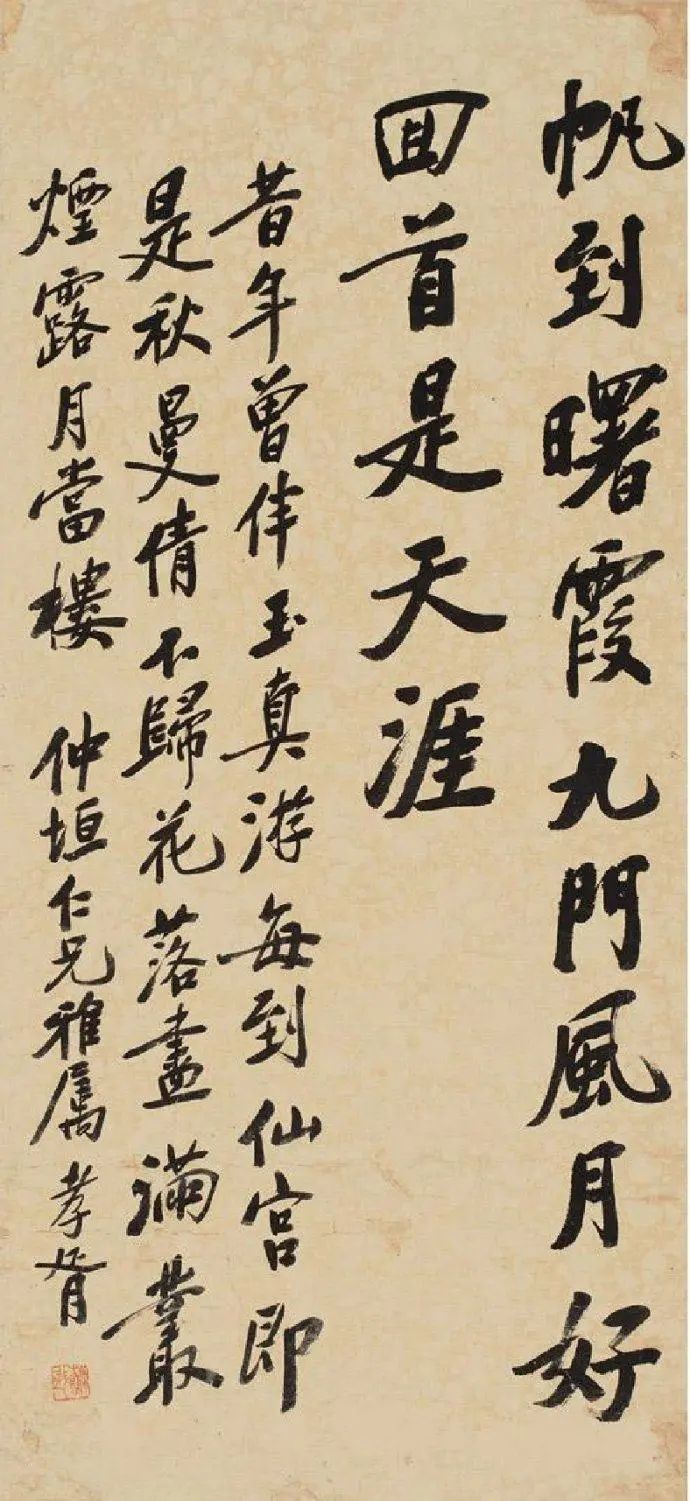 帆到曙霞九門風月好
回首是天涯
昔年曾伴玉真游每到仙宮即
是秋曼倩不歸花落盡滿叢
煙露月當樓 仲垣仁兄雅属 孝胥